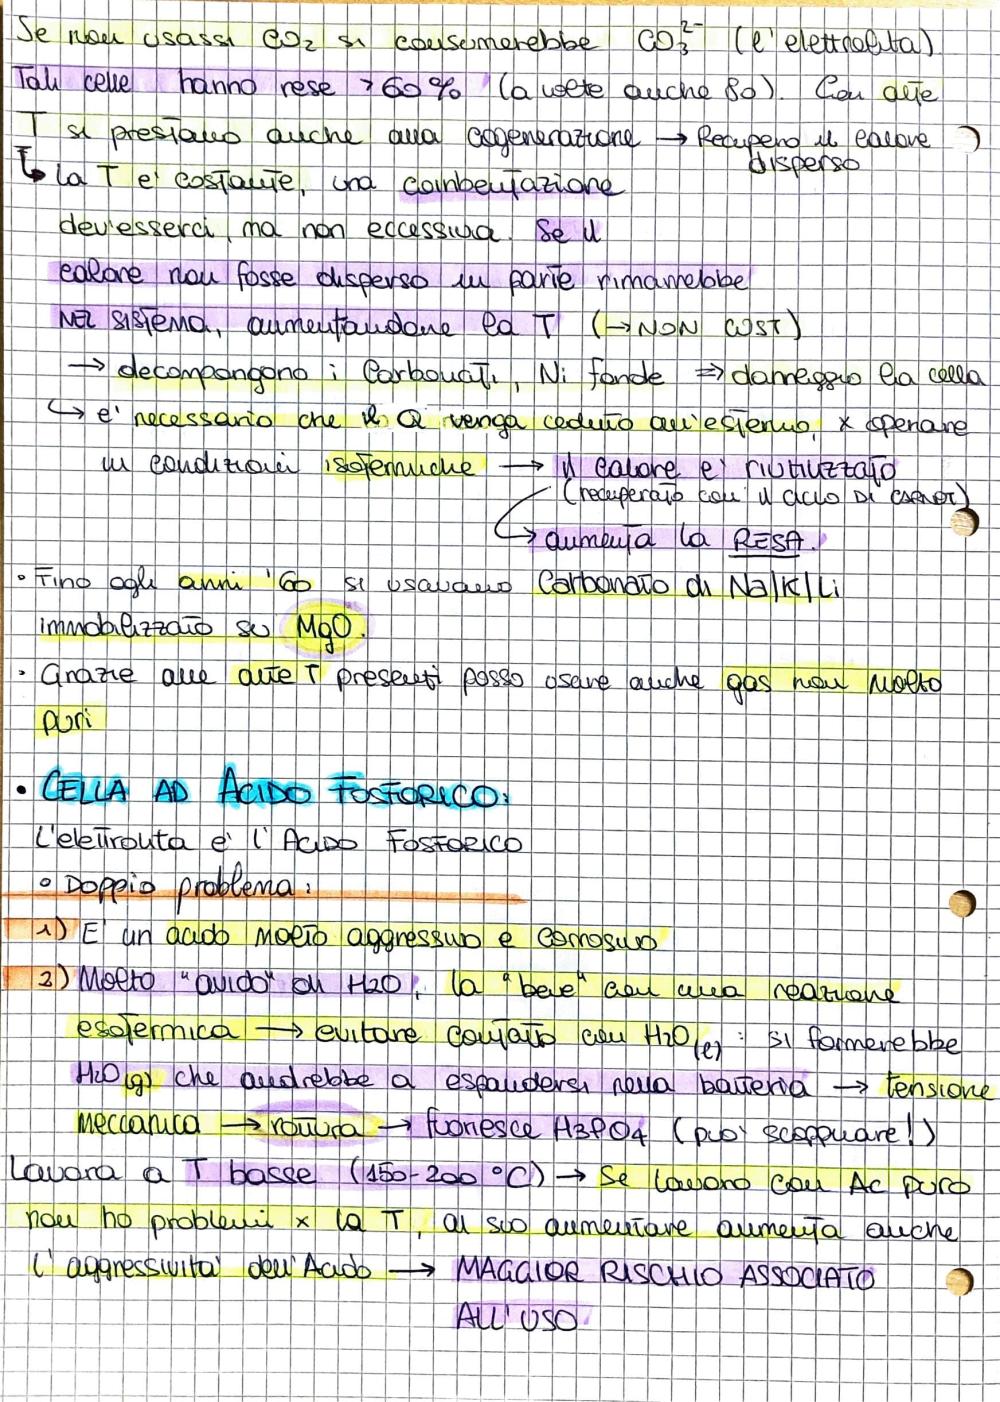 Se non usassi CO2 si consumerebbe CO3²⁻ (l'elettrolita).
Tali celle hanno rese >60% (a volte anche 80). Con alte
T si prestano anche alla cogenerazione → Recupero il calore
disperso
↳ La T e' costante, una coinbentazione
dev'esserci, ma non eccessiva. Se il
calore non fosse disperso in parte rimarrebbe
NEL SISTEMA, aumentandone la T (→ NON COST)
→ decompongono i Carbonati, Ni fonde ⇒ danneggio la cella
↳ e' necessario che il Q venga ceduto all'esterno, x operare
in condizioni isotermiche → il calore e' riutilizzato
(recuperato con il ciclo DI CARNOT)
→ aumenta la RESA.
• Fino agli anni '60 si usavano Carbonato di Na/K/Li
immobilizzato su MgO.
• Grazie alle alte T presenti posso usare anche gas non molto
puri
• CELLA AD ACIDO FOSFORICO:
L'elettrolita e' l'ACIDO FOSFORICO
° Doppio problema:
1) E' un acido molto aggressivo e corrosivo
2) Molto "avido" di H2O, la "beve" con una reazione
esotermica → evitare contatto con H2O(l): si formerebbe
H2O(g) che andrebbe a espandersi nella batteria → tensione
meccanica → rottura → fuoriesce H3PO4 (puo' scoppiare!)
Lavora a T basse (150-200 °C) → Se lavoro con Ac puro
non ho problemi x la T, al suo aumentare aumenta anche
l'aggressivita' dell'Acido → MAGGIOR RISCHIO ASSOCIATO
ALL'USO